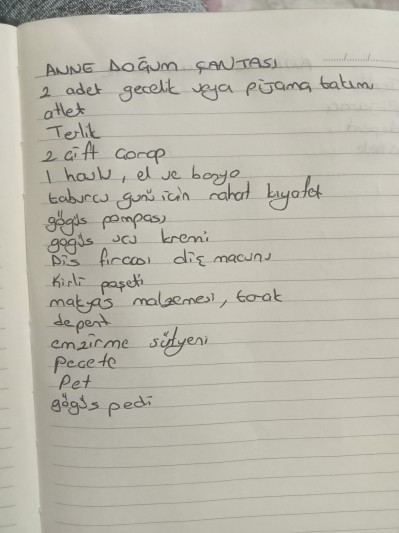 ANNE DOĞUM ÇANTASI
2 adet gecelik veya pijama takım
atlet
Terlik
2 çift çorap
1 havlu, el ve banyo
taburcu günü için rahat kıyafet
göğüs pompası
göğüs ucu kremi
Diş fırçası diş macunu
Kirli poşeti
makyaj malzemesi, tarak
depent
emzirme sütyeni
Peçete
Pet
göğüs pedi